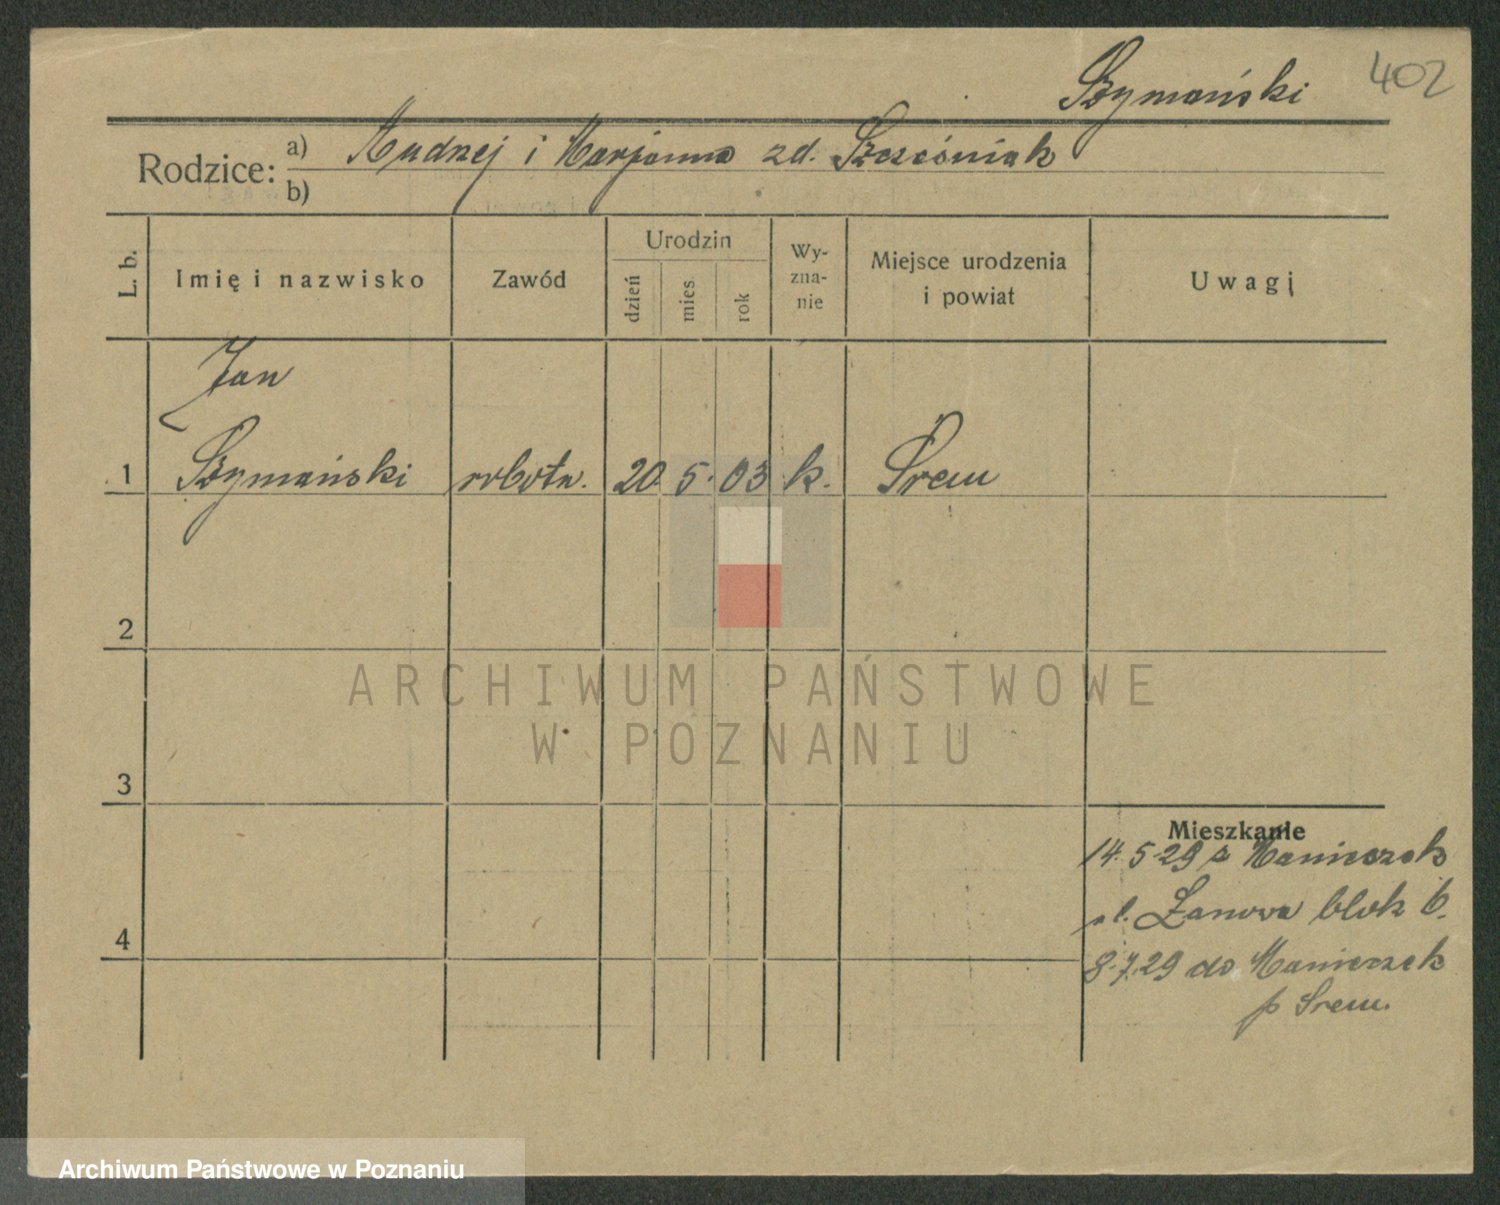 Szymański
402
Rodzice:
a) Andrzej i Marjanna zd. Szcześniak
b)
L. b.
Imię i nazwisko
Zawód
Urodzin
dzień
mies
rok
Wy-
zna-
nie
Miejsce urodzenia
i powiat
Uwagi
Jan
1 Szymański robotn. 20 5. 03 k. Śrem
2
3
4
Mieszkanie
14.5.29 z Manieczek
ul. Łanowa blok 6.
8.7.29 do Manieczek
p Śrem.
ARCHIWUM PAŃSTWOWE
W POZNANIU
Archiwum Państwowe w Poznaniu